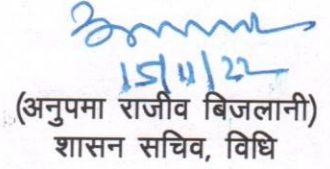 15/11/22
(अनुपमा राजीव बिजलानी)
शासन सचिव, विधि